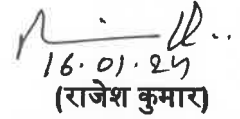 16.01.25
(राजेश कुमार)